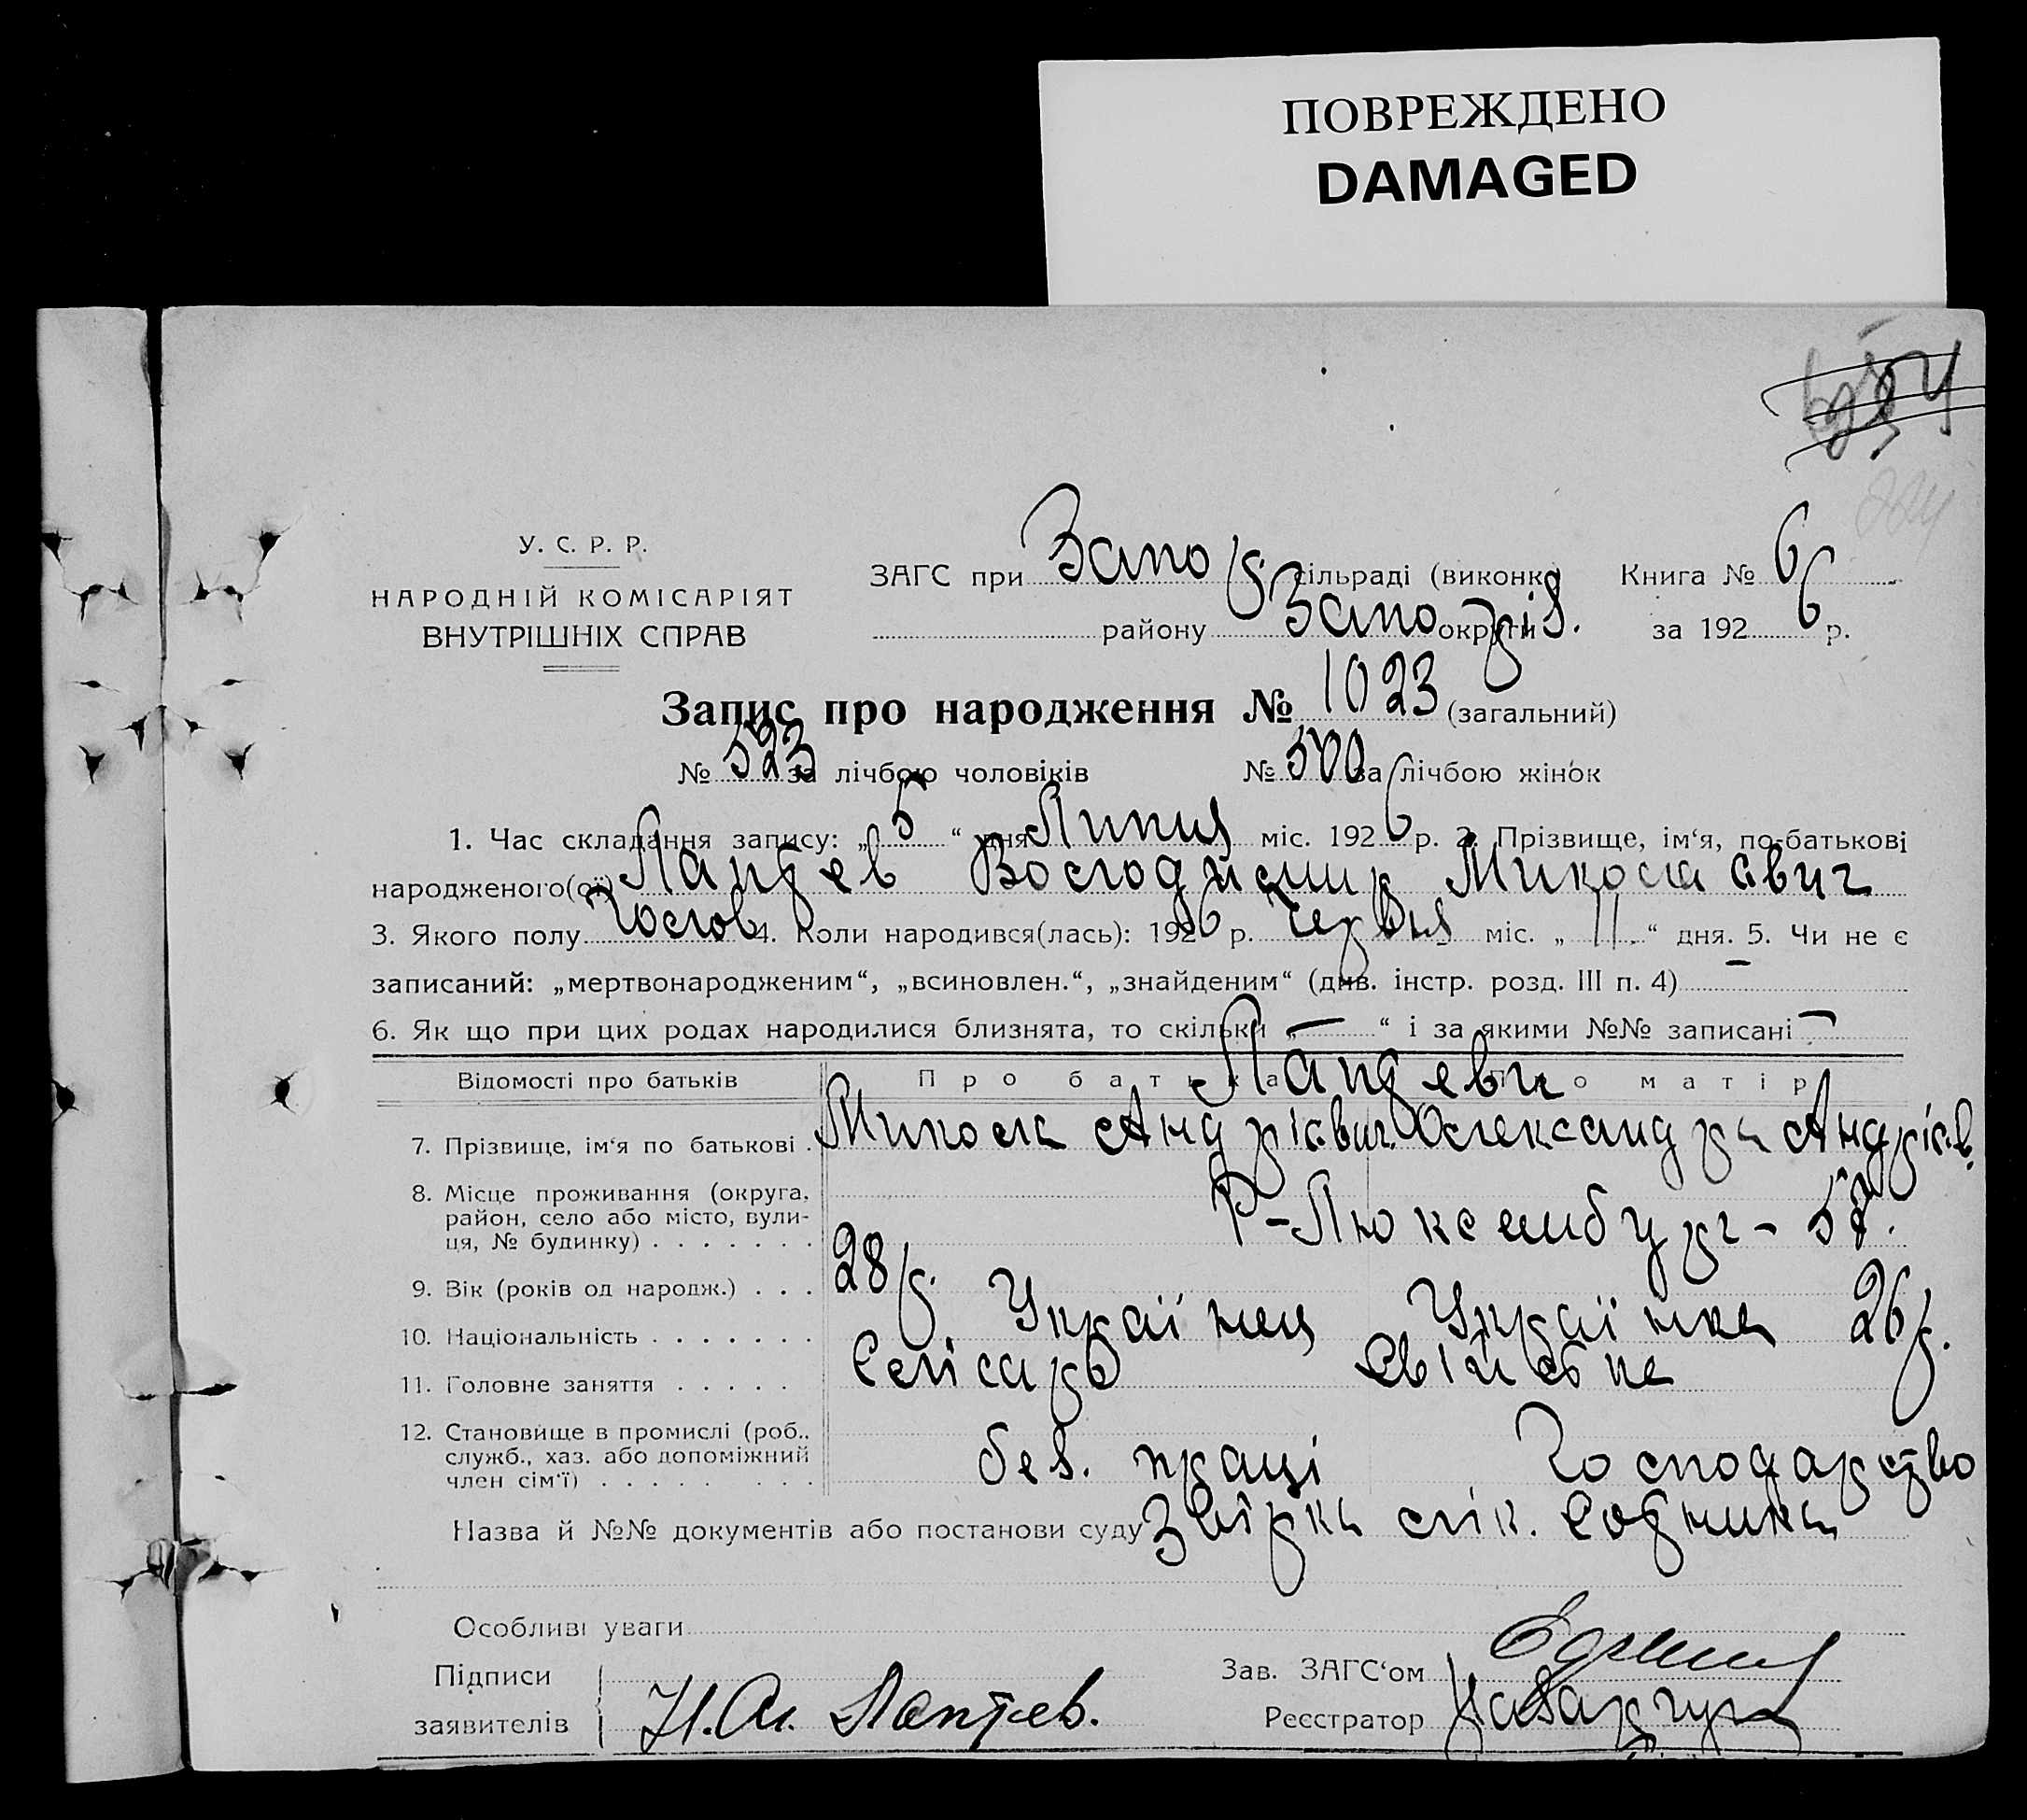 ПОВРЕЖДЕНО
DAMAGED
У. С. Р. Р.
НАРОДНІЙ КОМІСАРІЯТ
ВНУТРІШНІХ СПРАВ
ЗАГС при Запор. сільраді (виконк.) Книга № 6
району Запоріз. округи за 1926 р.
Запис про народження № 1023 (загальний)
№ 523 за лічбою чоловіків № 500 за лічбою жінок
1. Час складання запису: „5“ дня Липця міс. 1926 р. 2. Прізвище, ім‘я, по-батькові
народженого(ої) Лаптев Володимир Миколаєвич
3. Якого полу Чолов 4. Коли народився(лась): 1926 р. Червня міс. „11.“ дня. 5. Чи не є
записаний: „мертвонародженим“, „всиновлен.“, „знайденим“ (див. інстр. розд. III п. 4) —
6. Як що при цих родах народилися близнята, то скільки „—“ і за якими №№ записані —
Відомості про батьків Про батька Про матір
Лаптеви
7. Прізвище, ім‘я по батькові . Микола Андрієвич Олександра Андрієв.
8. Місце проживання (округа,
район, село або місто, вули-
ця, № будинку) . . . . . . . Р-Люксембург - 57.
9. Вік (років од народж.) . . . 28 р. 26 р.
10. Національність . . . . . . . Українец Українка
11. Головне заняття . . . . . Слісарь Свійська
12. Становище в промислі (роб.,
служб., хаз. або допоміжний
член сім‘ї) . . . . . . . . без. праці Господарство
Назва й №№ документів або постанови суду Звірка лік. Сотника
Особливі уваги
Підписи
заявителів Н. Ан. Лаптев.
Зав. ЗАГС‘ом
Реєстратор